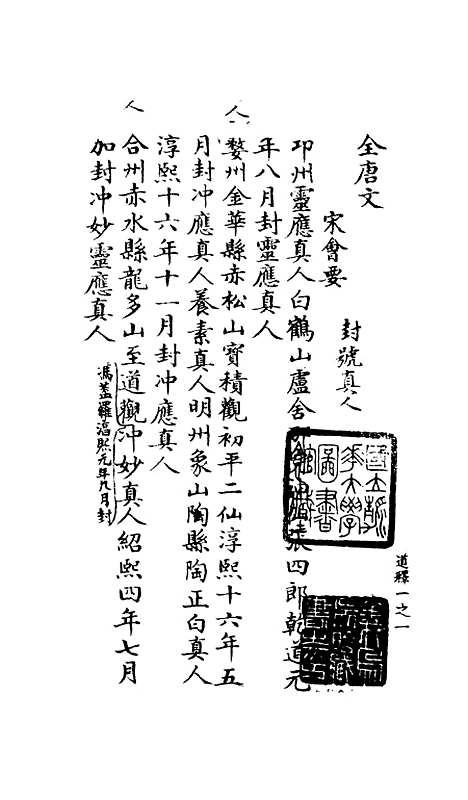 全唐文
宋會要
封號真人
卭州靈應真人白鶴山盧舍張四郎乾道元
年八月封靈應真人
婺州金華縣赤松山寳積觀初平二仙淳熙十六年五
月封冲應真人養素真人明州象山陶縣陶正白真人
淳熙十六年十一月封冲應真人
合州赤水縣龍多山至道觀冲妙真人紹熙四年七月
馮蓋羅淳熙元年九月封
加封冲妙靈應真人
道釋一之一
人
人
國立
大學
圖書